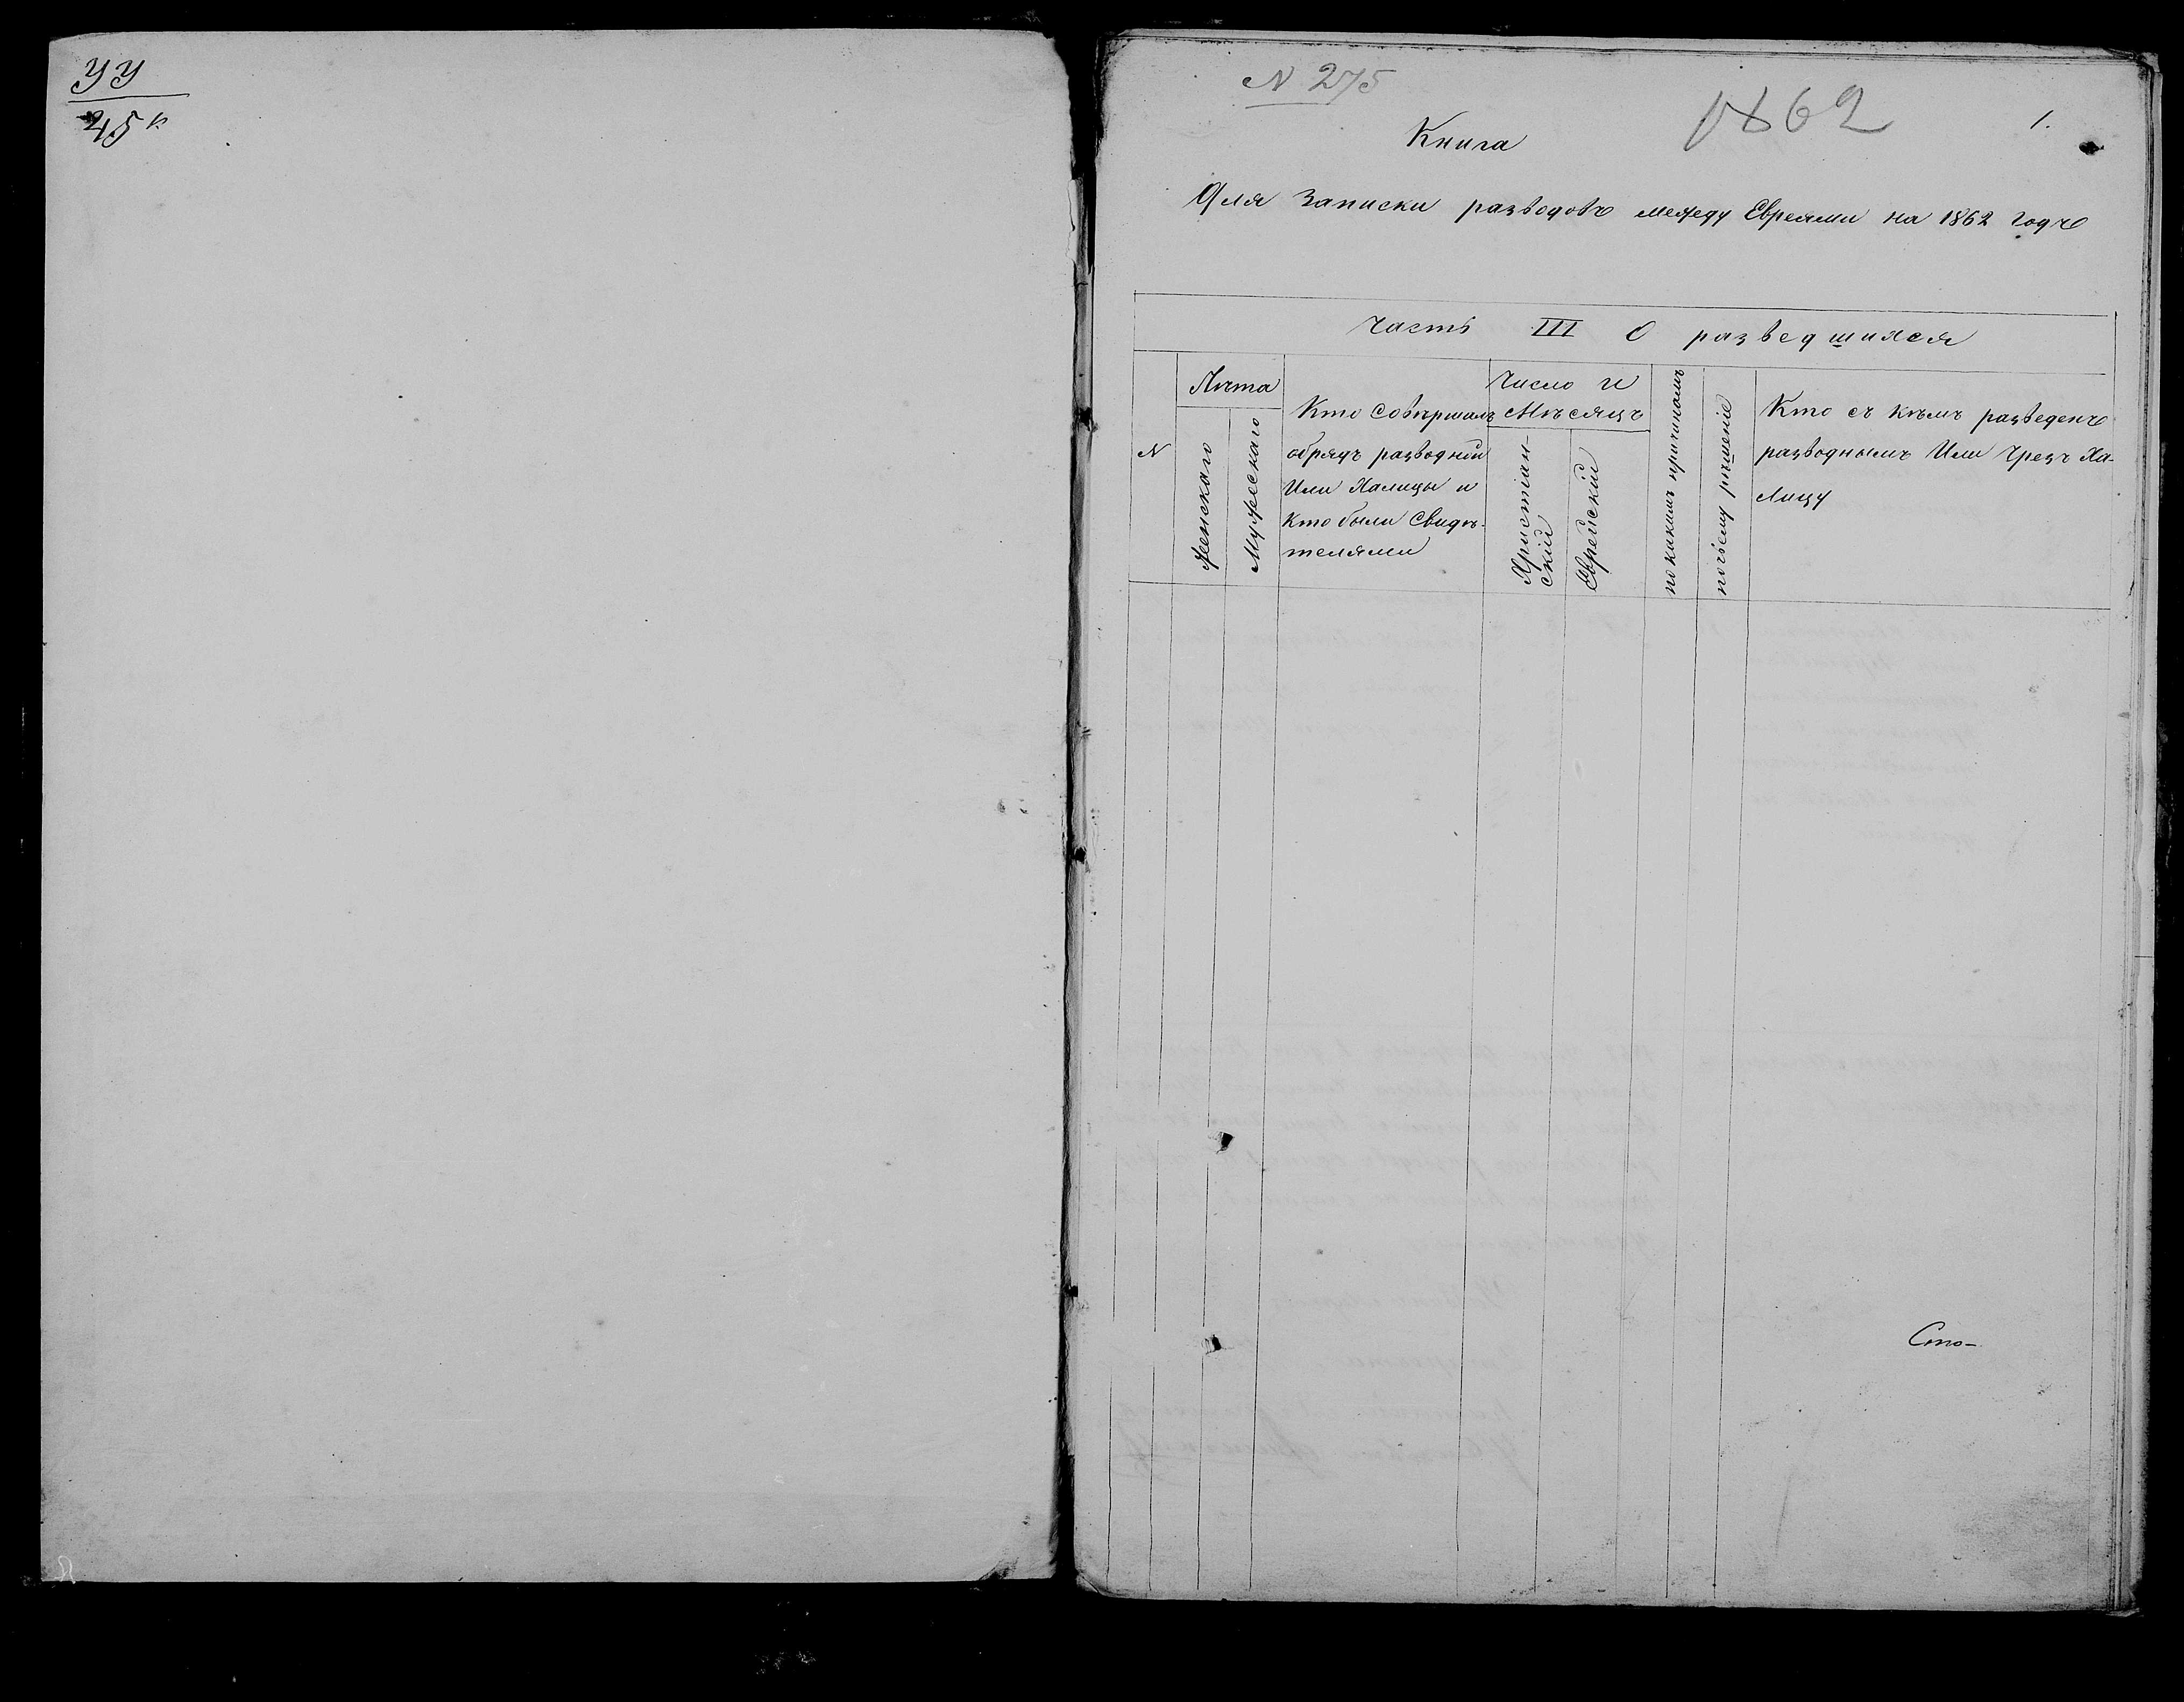 УУ
45 к
N 275
1862
1.
Книга
Для Записки разводовъ между Евреями на 1862 годъ
Часть III О разведшихся
N
Лѣта
Женскаго
Мужескаго
Кто Совѣршалъ
обрядъ разводній
Или Халицы и
Кто были Свидѣ-
телями
Число и
Мѣсяцъ
Христіан-
скій
Еврейскій
по какимъ причинамъ
по чьему рѣшенію
Кто съ кѣмъ разведенъ
разводнымъ Или Чрезъ Ха-
Лицу
Сто-